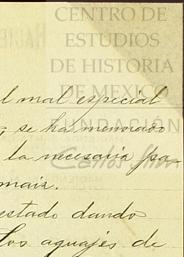 CENTRO DE
ESTUDIOS
DE HISTORIA
DE MEXICO
FUNDACIÓN
Carlos Slim
el mal especial
se ha menorado
la necesaria pa-
mais.
estado dando
los aguajes de